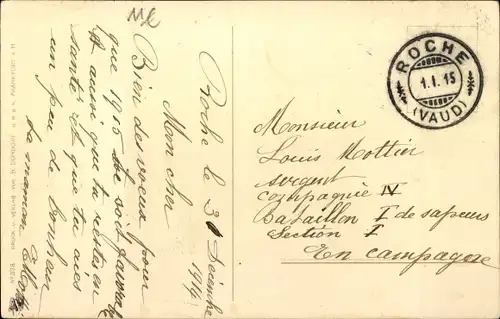 Roche le 31 Décembre
1914
Mon cher
Bien des voeux pour
que 1915 te soit favorable
& aussi que tu restes en
santé et que tu aies
un peu de bonheur
ta maman
ROCHE
1.I.15
(VAUD)
Monsieur
Louis Mottier
sergent
compagnie IV
Bataillon I de sapeurs
Section I
En campagne